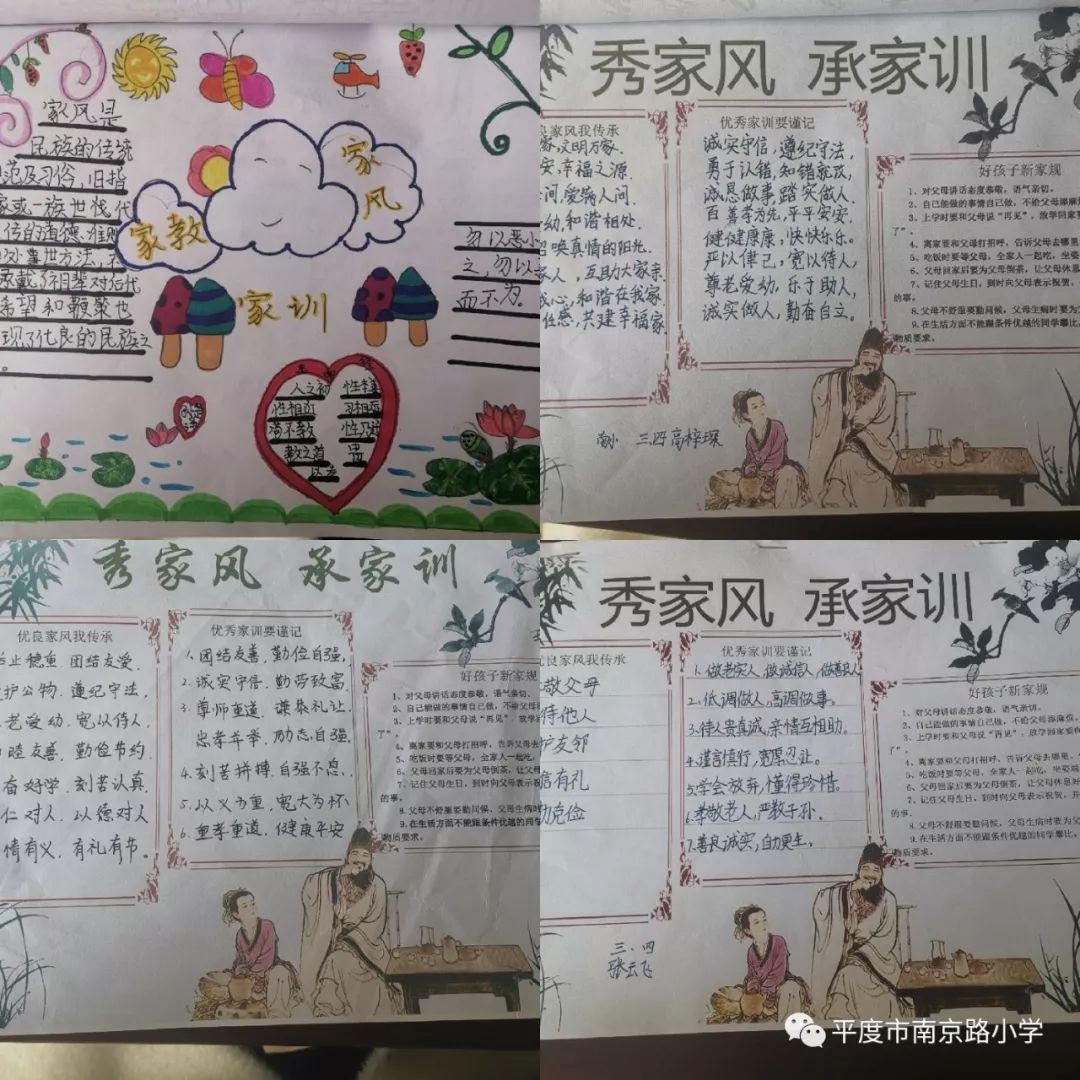 家风是
民族的传统
范及习俗,旧指
家或一族世代
传的道德准则
处事世方法,
承载了祖辈对后代
希望和鞭策也
现了优良的民族之
。
家教
家风
家训
勿以恶小
之,勿以
而不为。
人之初 性本善
性相近 习相远
苟不教 性乃迁
教之道 贵
以专
秀家风 承家训
良家风我传承
家,文明万家.
安,幸福之源.
间,爱病人间.
幼,和谐相处.
唤真情的阳光.
人,互助大家亲
心,和谐在我家
任感,共建幸福家
优秀家训要谨记
诚实守信,遵纪守法,
勇于认错,知错就改,
诚恳做事,踏实做人.
百善孝为先,平平安安.
健健康康,快快乐乐.
严以律己,宽以待人,
尊老爱幼,乐于助人,
诚实做人,勤奋自立。
好孩子新家规
1、对父母讲话态度恭敬,语气亲切。
2、自己能做的事情自己做,不给父母添麻
3、上学时要和父母说“再见”,放学回家
了”。
4、离家要和父母打招呼,告诉父母去哪里
5、吃饭时要等父母,全家人一起吃,坐姿
6、父母回家后要为父母倒茶,让父母休息
7、记住父母生日,到时向父母表示祝贺,
的事。
8、父母不舒服要勤问候,父母生病时要为
9、在生活方面不能跟条件优越的同学攀比,
物质要求。
三四高梓琛
秀家风 承家训
优良家风我传承
止稳重.团结友爱.
护公物.遵纪守法,
老爱幼.宽以待人.
睦友善.勤俭节约.
奋好学.刻苦认真.
仁对人.以德对人
情有义.有礼有节。
优秀家训要谨记
1.团结友善,勤俭自强,
2.诚实守信,勤劳致富.
3.尊师重道,谦恭礼让.
忠孝并举,励志自强.
4.刻苦拼搏,自强不息.
5.以义为重,宽大为怀
6.重孝重道,健康平安
好孩子新家规
1、对父母讲话态度恭敬,语气亲切。
2、自己能做的事情自己做,不给父母
3、上学时要和父母说“再见”,放学
了”。
4、离家要和父母打招呼,告诉父母去
5、吃饭时要等父母,全家人一起吃,
6、父母回家后要为父母倒茶,让父母
7、记住父母生日,到时向父母表示
的事。
8、父母不舒服要勤问候,父母生病时
9、在生活方面不能跟条件优越的同学
物质要求。
秀家风 承家训
优良家风我传承
敬父母
待他人
友邻
信有礼
克俭
优秀家训要谨记
1.做老实人 做诚信人,做善良人
2.低调做人,高调做事。
3.待人贵真诚,亲情互相助。
4.谨言慎行,宽厚忍让。
5.学会放弃,懂得珍惜。
6.孝敬老人,严教子孙.
7.善良诚实,自力更生。
好孩子新家规
1、对父母讲话态度恭敬,语气亲切。
2、自己能做的事情自己做,不给父母添麻
3、上学时要和父母说“再见”,放学回家要向
了”。
4、离家要和父母打招呼,告诉父母去哪里,
5、吃饭时要等父母,全家人一起吃,坐姿端
6、父母回家后要为父母倒茶,让父母休息好
7、记住父母生日,到时向父母表示祝贺,开
的事。
8、父母不舒服要勤问候,父母生病时要为父
9、在生活方面不能跟条件优越的同学攀比,
物质要求。
三.四
张云飞
平度市南京路小学